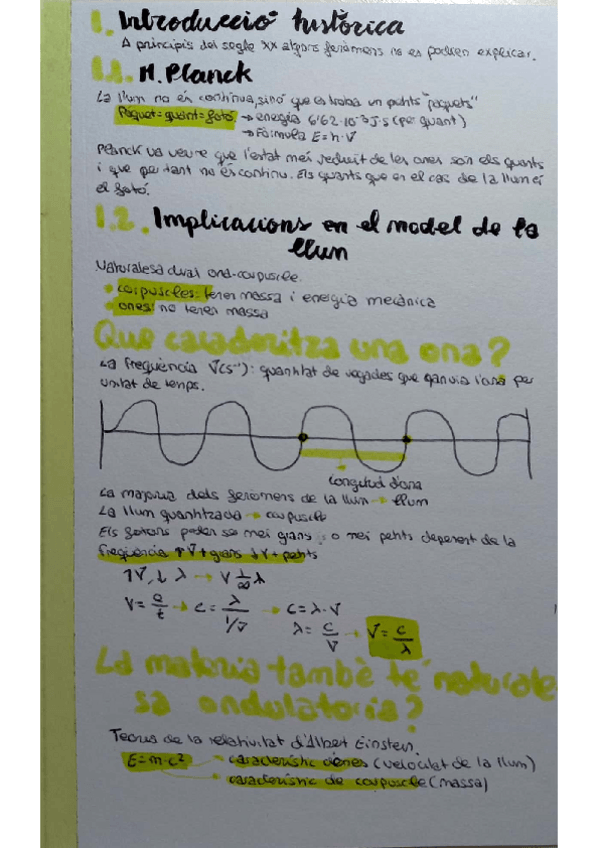 1. Introducció històrica
A principis del segle XX alguns fenòmens no es podien explicar.
1.1. M. Planck
La llum no és contínua, sinó que es troba en petits "paquets"
Paquet=quant=fotó → energia 6'62·10⁻³J·s (per quant)
→ Fórmula E=h·ν
Planck va veure que l'estat més reduït de les ones són els quants
i que per tant no és continu. Els quants que en el cas de la llum és
el fotó.
1.2. Implicacions en el model de la
llum
Naturalesa dual ona-corpuscle.
• corpuscles: tenen massa i energia mecànica
• ones: no tenen massa
Que caracteritza una ona?
La freqüència ν(s⁻¹): quantitat de vegades que canvia l'ona per
unitat de temps.
Longitud d'ona
La majoria dels fenòmens de la llum → llum
La llum quantitzada → corpuscle
Els fotons poden ser més grans o més petits depenent de la
freqüència ↑ν + grans ↓ν + petits
↑ν, ↓ λ → ν 1/∞ λ
V = e/t → C = λ / 1/ν → C = λ·ν
λ = C/ν → ν = C/λ
La matèria també té naturale
sa ondulatòria?
Teoria de la relativitat d'Albert Einstein.
E=m·c² → característic d'ones (velocitat de la llum)
→ característic de corpuscle (massa)